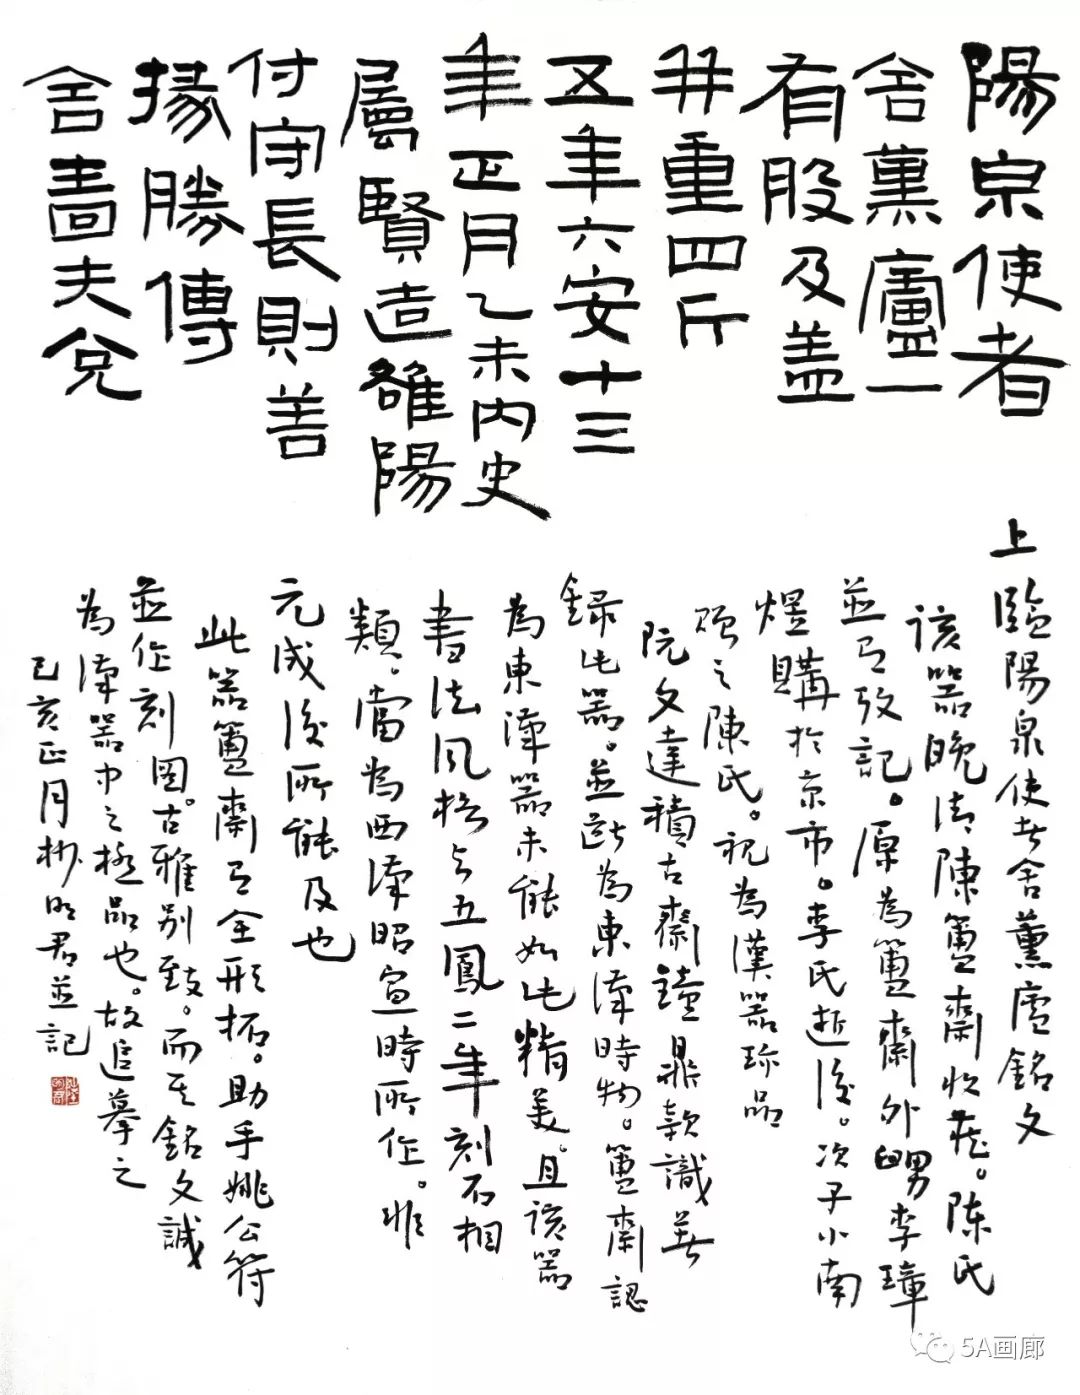 陽泉使者
舍薰廬一
有股及盖
并重四斤
五年六安十三
年正月乙未内史
屬賢造雒陽
付守長則善
掾勝傳
舍嗇夫兌
上臨陽泉使者舍薰廬銘文
該器晚清陳簠齋收藏。陈氏
並有攷記。原為簠齋外舅李璋
煜購於京市。李氏逝後。次子小南
之陳氏。視為漢器珎品
阮文達積古齋鐘鼎款識著
録此器。並斷為東漢時物。簠齋認
為東漢器未能如此精美。且該器
書法風格與五鳳二年刻石相
類。當為西漢昭宣時所作。非
元成後所能及也
此器簠齋有全形拓。助手姚公符
並作刻圖。古雅别致。而其銘文誠
為漢器中之極品也。故追摹之
己亥正月杪明君並記
5A画廊